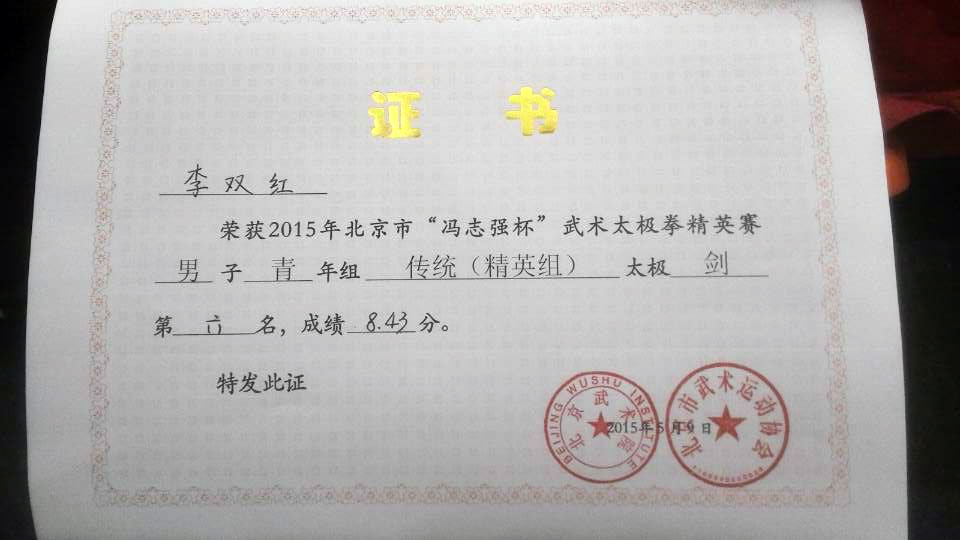 证 书
李双红
荣获2015年北京市“冯志强杯”武术太极拳精英赛
男子青年组传统（精英组）太极剑
第六名，成绩8.43分。
特发此证
BEIJING WUSHU INSTITUTE
北京武术院
北京市武术运动协会
2015年5月9日